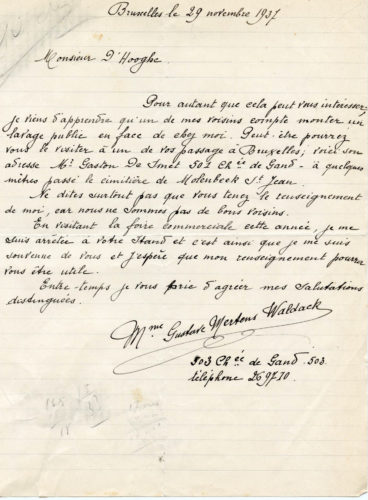 Bruxelles le 29 novembre 1937
Monsieur D'Hooghe.
Pour autant que cela peut vous intéresser,
je viens d'apprendre qu'un de mes voisins compte monter un
lavage public en face de chez moi. Peut-être pourrez
vous le visiter à un de vos passage à Bruxelles; voici son
adresse Mr Gaston De Smet 502 Chée de Gand - à quelques
mètres passé le cimitière de Molenbeck St Jean.
Ne dites surtout pas que vous tenez le renseignement
de moi, car nous ne sommes pas de bons voisins.
En visitant la foire commerciale cette année, je me
suis arrêtée à votre Stand et c'est ainsi que je me suis
souvenue de vous et j'espère que mon renseignement pourra
vous être utile.
Entre-temps je vous prie d'agréer mes salutations
distinguées.
Mme Gustave Mertens Waldack
503 Chée de Gand. 503.
téléphone 26.97.70